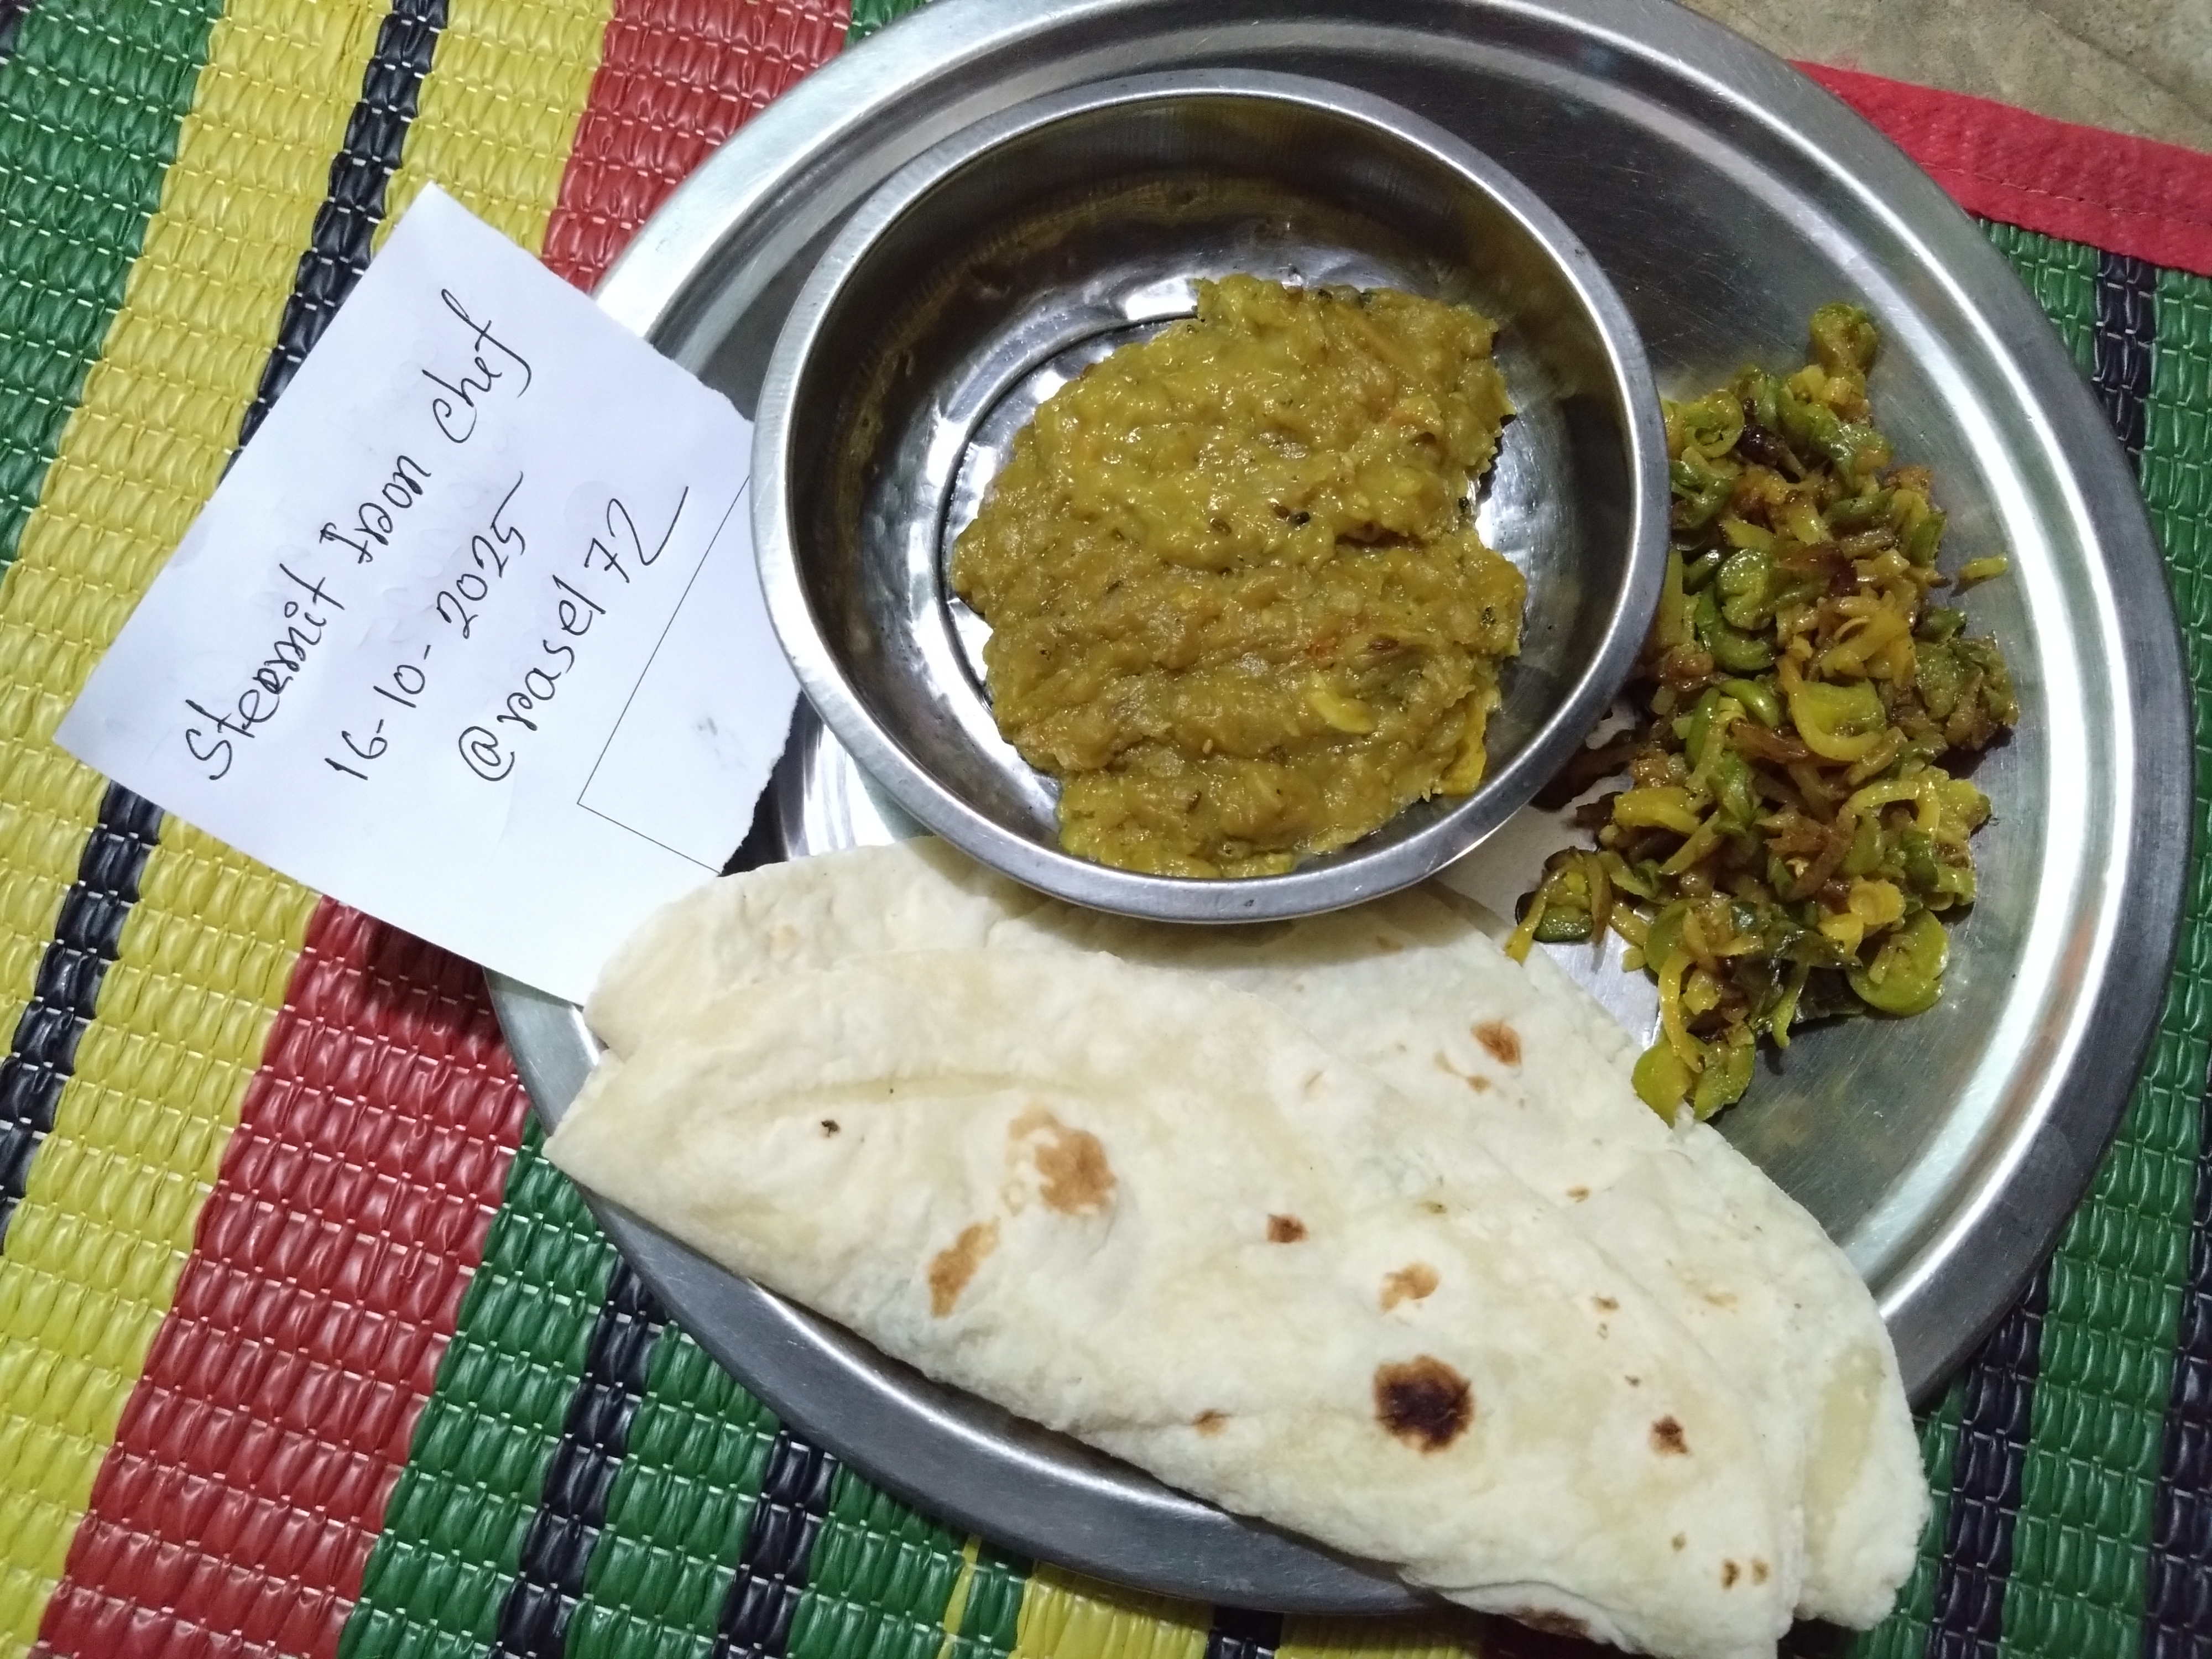 Steemit Iron Chef
16-10-2025
@rasel72